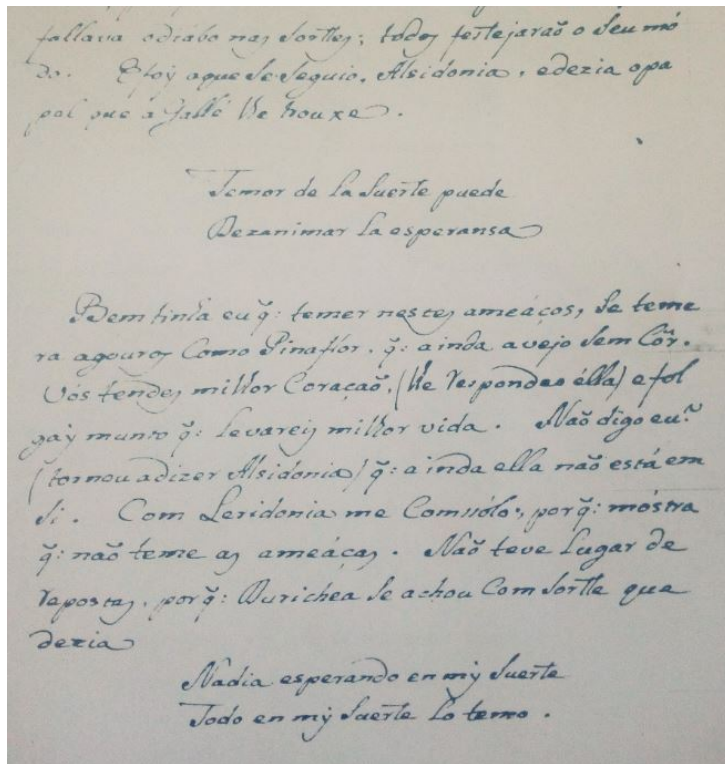 fallava o diabo nas sortes; todos festejaraõ o seu mo
do. E foy a que se seguio, Alsidonia, e dezia o pa
pel que a Jallé lhe trouxe.
Temor de la suerte puede
Dezanimar la esperansa
Bem tinha eu q̃: temer nestes ameáços, se teme
ra agouros Como Pinaflor, q̃: ainda a vejo sem Côr.
Vós tendes milhor Coraçaõ, (lhe respondeo élla) e fol
gay munto q̃: levareis milhor vida. Naõ digo eu?
(tornou a dizer Alsidonia) q̃: ainda ella naõ está em
si. Com Leridonia me Comsólo, porq̃: móstra
q̃: naõ teme as ameáças. Naõ teve lugar de
repostas, porq̃: Durichea se achou Com sortte que
dezia
Nadia esperando en mÿ suerte
Todo en mÿ suerte lo temo.